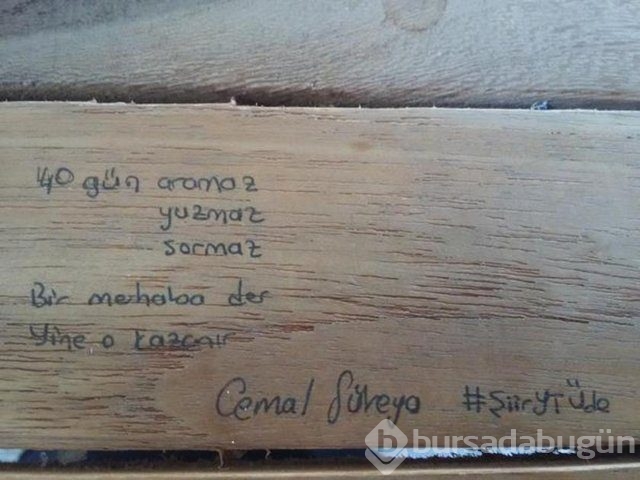 40 gün aramaz
yuzmaz
sormaz
Bir merhaba der
Yine o kazanır
Cemal Süreya #şiirYTÜde
bursadabugün